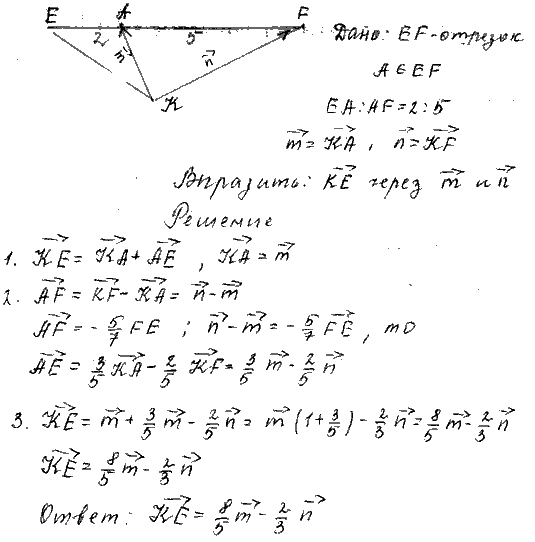 E A F
2 5
m⃗ n⃗
K
Дано: EF-отрезок
A ∈ EF
EA:AF=2:5
m⃗ = KA⃗, n⃗ = KF⃗
Выразить: KE⃗ через m⃗ и n⃗
Решение
1. KE⃗ = KA⃗ + AE⃗, KA⃗ = m⃗
2. AF⃗ = KF⃗ - KA⃗ = n⃗ - m⃗
AF⃗ = - 5/7 FE ; n⃗ - m⃗ = - 5/7 FE⃗, то
AE⃗ = 3/5 KA⃗ - 2/5 KF⃗ = 3/5 m⃗ - 2/5 n⃗
3. KE⃗ = m⃗ + 3/5 m⃗ - 2/5 n⃗ = m⃗ (1 + 3/5) - 2/3 n⃗ = 8/5 m⃗ - 2/3 n⃗
KE⃗ = 8/5 m⃗ - 2/3 n⃗
Ответ: KE⃗ = 8/5 m⃗ - 2/3 n⃗